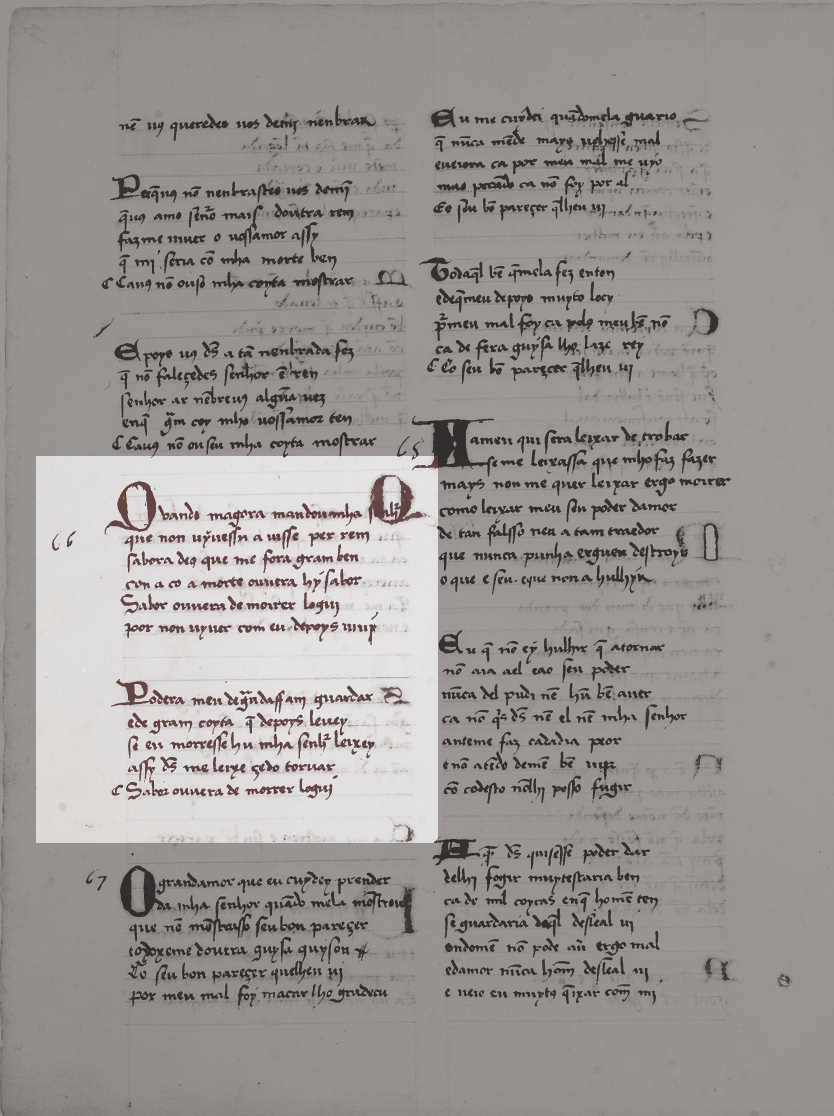 nẽ uꝯ queredes uos demj nenbrar
Per q̃uꝯ nõ nenbrastes uos demj̃
q̃uꝯ amo senõr mais doutra rem
faz me uiuer o uossamor assy
q̃ mi seria cõ mha morte ben
E auꝯ nõ ouso mha coyta mostrar
E poys uꝯ ds̃ a tã nenbrada fez
q̃ nõ faleçedes senhor ẽ ren
senhor ar nẽbreuꝯ algũa uez
enq̃ grã coy mho uossamor ten
E auꝯ nõ ouseu mha coyta mostrar
66
Quando magora mandou mha senhr̃
que non uyuessen a uisse per rem
sabora deꝯ que me fora gram ben
con a co a morte ouuera hy sabor
Sabor ouuera de moirer logui
por non uyuer com eu depoys uiuj
Podera meu degrãdaffam guardar
ede gram coyta q̃ depoys leuey
se eu morresse hu mha senhr̃ leixey
assy ds̃ me leixe çedo tornar
E Sabor ouuera de morrer logui
67
O grandamor que eu cuydey prender
da mha senhor quãdo mela mostrou
que nõ mõstrasso seu bon pareçer
doutra guysa guyson
Eo seu bon pareçer quelheu ui
por meu mal foy macar lho gradecu
Eu me cuydei quãdomela guario
q̃ nũca mẽde mayꝯ uehesse mal
eueiora ca por meu mal me uyo
mao pecado ca nõ foy por al
Eo seu bẽ pareçer q̃lheu ui
Todaq̃l bẽ q̃mela fez enton
edeq̃meu depoys muyto locy
pr̃meu mal foy ca polo meu bẽ nõ
ca de fera guysa lhe laze rey
E Eo seu bẽ pareçer q̃lheu ui
65
Nameu qui sera leixar de trobar
se me leixassa que mho faz fazer
mays non me quer leixar ergo moirer
como leixar meu seu poder damor
de tan falsso neu a tam traedor
que nunca punha erguen destroyr
o que e seu. e que non a hulhyr
Eu q̃ nõ ey hulhir q̃ atornar
nõ aia ael eao seu poder
nũca del pudi nẽ hũ bẽ auer
ca nõ q̃s ds̃ nẽ el nẽ mha senhor
anteme faz cadadia peor
e nõ atẽdo demẽ bẽ
cõ codesto nõlhi posso fugir
E q̃ ds̃ quisesse poder dar
delhi fogir muytestaria ben
ca de mil coytas enq̃ homẽ ten
se guardaria daq̃l desleal ui
ondomẽ nõ pode auer ergo mal
edamor nũca hom̃ desleal ui
e ueio eu muytꝯ q̃ixar com̃ mi